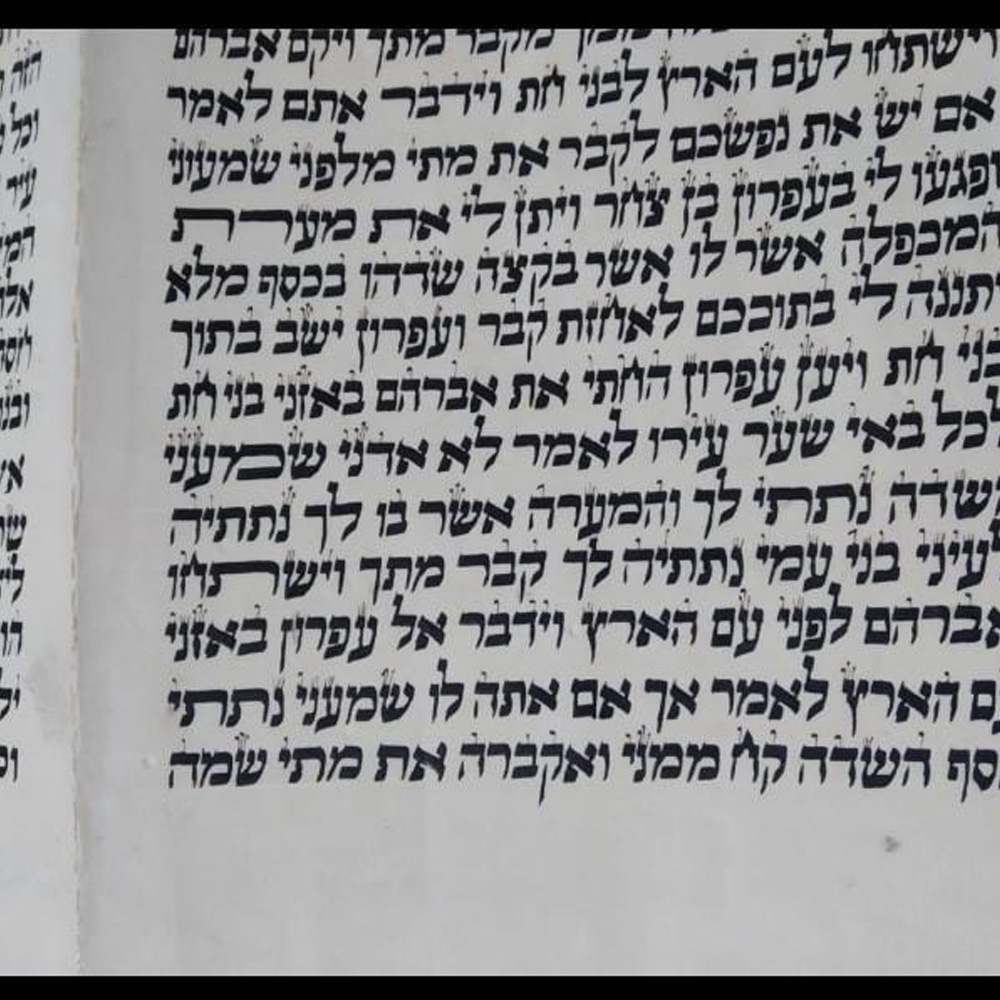 מקבר מתך ויקם אברהם
וישתחו לעם הארץ לבני חת וידבר אתם לאמר
אם יש את נפשכם לקבר את מתי מלפני שמעוני
ופגעו לי בעפרון בן צחר ויתן לי את מערת
המכפלה אשר לו אשר בקצה שדהו בכסף מלא
יתננה לי בתוככם לאחזת קבר ועפרון ישב בתוך
בני חת ויען עפרון החתי את אברהם באזני בני חת
לכל באי שער עירו לאמר לא אדני שמעני
השדה נתתי לך והמערה אשר בו לך נתתיה
לעיני בני עמי נתתיה לך קבר מתך וישתחו
אברהם לפני עם הארץ וידבר אל עפרון באזני
עם הארץ לאמר אך אם אתה לו שמעני נתתי
כסף השדה קח ממני ואקברה את מתי שמה